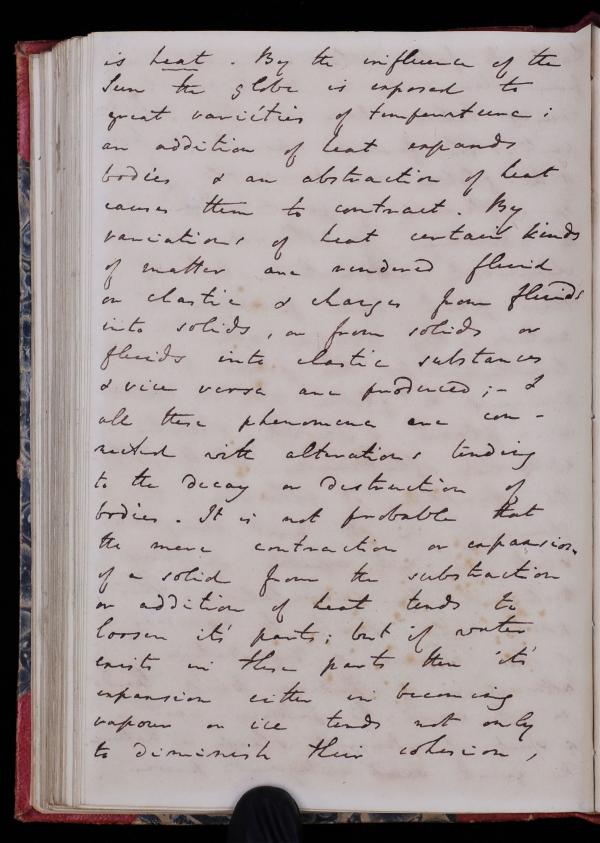 is heat. By the influence of the
Sun the globe is exposed to
great varieties of temperature;
an addition of heat expands
bodies & an abstraction of heat
causes them to contract. By
variations of heat certain kinds
of matter are rendered fluid
or elastic & changes from fluids
into solids, or from solids or
fluids into elastic substances
& vice versa are produced; - &
all these phenomena are con-
nected with alterations tending
to the decay or destruction of
bodies. It is not probable that
the mere contraction or expansion
of a solid from the substraction
or addition of heat tends to
loosen it's parts; but if water
exists in these parts then it's
expansion either in becoming
vapour or ice tends not only
to diminish their cohesion,